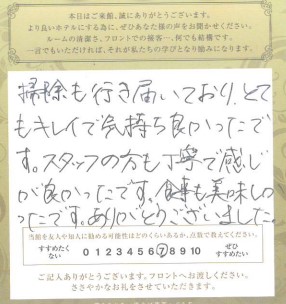 本日はご来館、誠にありがとうございます。
より良いホテルにする為に、ぜひあなた様の声をお聞かせください。
ルームの清潔さ、フロントでの接客…、何でも結構です。
一言でもいただければ、それが私たちの学びとなり励みになります。
掃除も行き届いており、とて
もキレイで気持ち良かったで
す。スタッフの方も丁寧で感じ
が良かったです。食事も美味しか
ったです。ありがとうございました。
当館を友人や知人に勧める可能性はどのくらいあるか、点数で教えてください。
すすめたくない 0 1 2 3 4 5 6 7 8 9 10 ぜひすすめたい
ご記入ありがとうございます。フロントへお渡しください。
ささやかなお礼をさせていただきます。